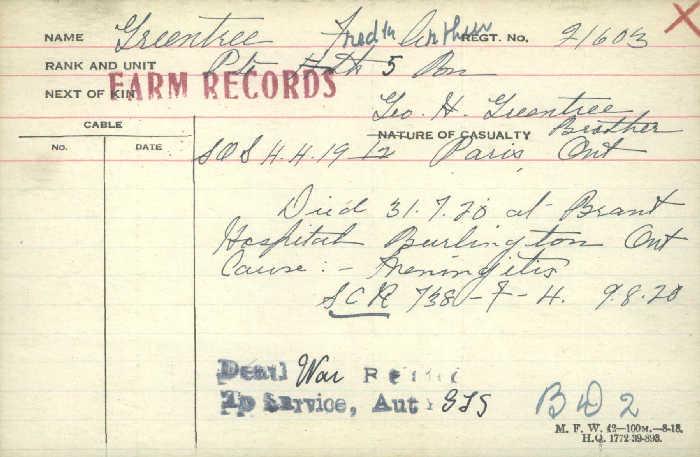 NAME Greentree Fred'k Arthur REGT. No. 21603
RANK AND UNIT Pte 5 Bn
NEXT OF KIN FARM RECORDS
Geo. H. Greentree
CABLE NATURE OF CASUALTY Brother
No. DATE SOS 4.4.19 Paris Ont
Died 31.7.20 at Brant
Hospital Burlington Ont
Cause :- Meningitis
SCR 738-F-4. 9.8.20
Death War
To Service, Aut GSS
BD 2
M. F. W. 42—100M.—8-18.
H.Q. 1772-39-893.